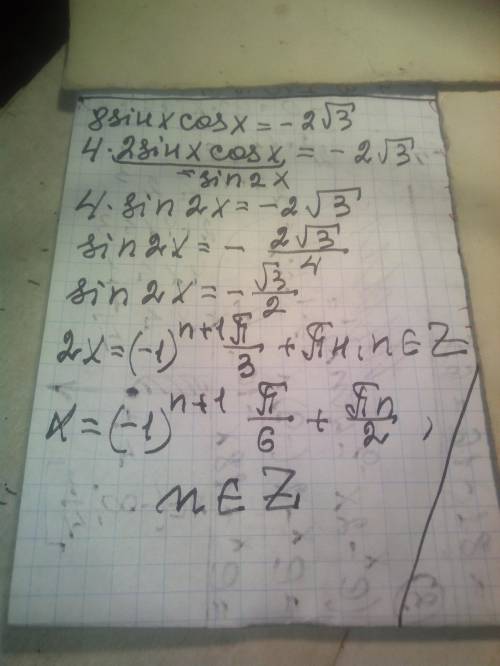 8sinxcosx = -2√3
4·2sinxcosx = -2√3
=sin2x
4·sin2x = -2√3
sin2x = - 2√3/4
sin2x = - √3/2
2x = (-1)^(n+1) π/3 + πn, n ∈ Z
x = (-1)^(n+1) π/6 + πn/2,
n ∈ Z